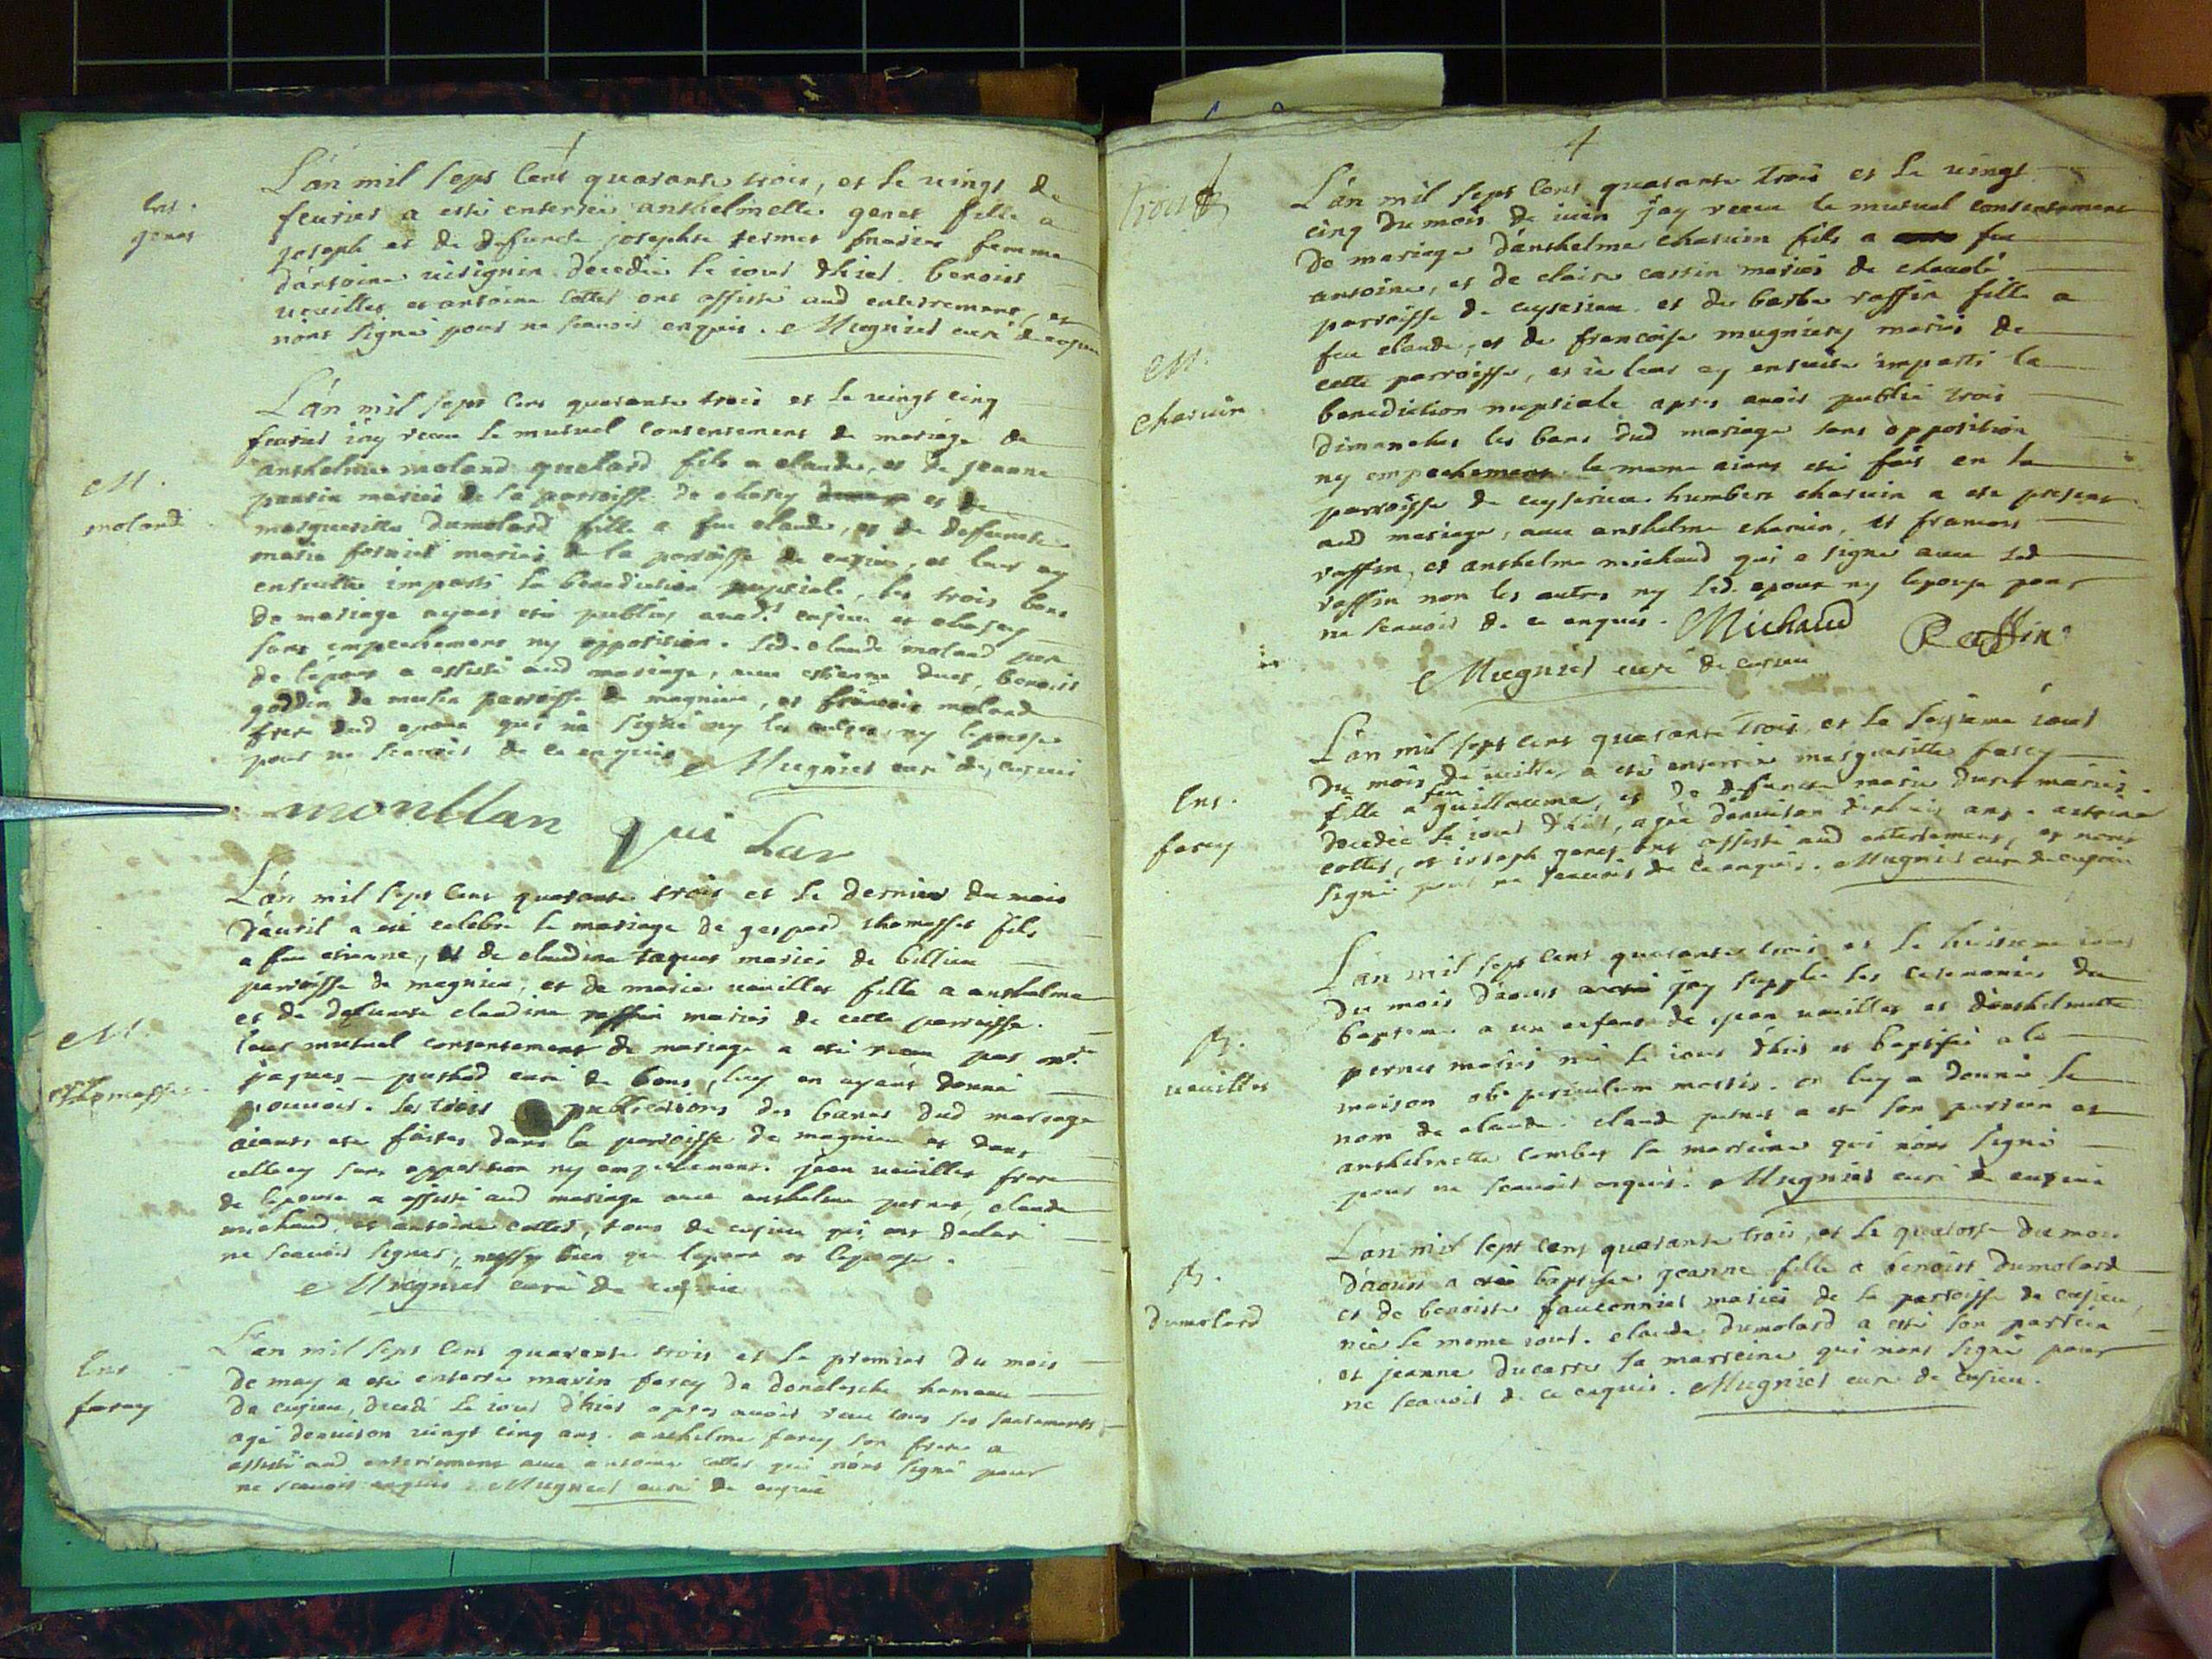 Ent.
genet
L'an mil sept cent quarante trois, et le vingt de
feurier a esté enterrée anthelmette genet fille a
joseph et de defuncte josephte permet mariés femme
d'antoine visignin decedée le iour d'hier. benoist
vuillet et antoine cottet ont assisté aud enterrement, et
n'ont signé pour ne scauoir enquis. Mugnier curé de cuzieu
M.
moland
L'an mil sept cent quarante trois et le vingt cinq
feurier j'ay receu le mutuel consentement de mariage de
anthelme moland quelard fils a claude, et de jeanne
pantin mariés de la parroisse de chasey et de
margueritte dumolard fille a feu claude, et de defuncte
marie fornier mariés de la parroisse de cuzieu, et leur ay
ensuitte imparti la benediction nuptiale, les trois bans
de mariage ayant esté publiés auxd. cusieu et chasey
sans empechement ny opposition. led. claude moland pere
de l'epoux a assisté aud mariage, auec estienne duet, benoist
goddin de musin parroisse de magnieu, et francois moland
frere dud epoux qui n'a signé ny les autres, ny l'epouse
pour ne scauoir de ce enquis Mugnier curé de cusieu
monblan qui har
M.
Thomasset
L'an mil sept cent quarante trois et le dernier du mois
d'auril a esté celebré le mariage de gaspard thomasset fils
a feu etienne, et de claudine taquet mariés de billieu
parroisse de magnieu, et de marie vuillet fille a anthelme
et de defuncte claudine raffin mariés de cette parroisse.
leur mutuel consentement de mariage a esté receu par mr.
jaques pushod curé de bons, luy en ayant donné
pouuoir. les trois publications des bancs dud mariage
aiants esté faites dans la parroisse de magnieu et dans
celle cy sans opposition ny empechement. jean vuillet frere
de l'epouse a assisté aud mariage auec anthelme pernet, claude
michaud, et antoine cottet, tous de cusieu qui ont declaré
ne scauoir signer, aussy bien que l'epoux et l'epouse.
Mugnier curé de cusieu
Ent
farcy
L'an mil sept cent quarante trois et le premier du mois
de may a esté enterré marin farcy de donalesche hameau
de cusieu, decedé le iour d'hier apres auoir receu tous ses sacrements
agé d'enuiron vingt cinq ans. anthelme farcy son frere a
assisté aud enterrement auec antoine cottet qui n'ont signé pour
ne scauoir enquis. Mugnier curé de cusieu
4
trois
M.
charuin
L'an mil sept cent quarante trois et le vingt
cinq du mois de iuin j'ay receu le mutuel consentement
de mariage d'anthelme charuin fils a feu
antoine, et de claire cassin mariés de chauolé
parroisse de ceyserieu. et de barbe raffin fille a
feu claude, et de francoise mugniery mariés de
cette parroisse, et ie leur ay ensuite imparti la
benediction nuptiale apres auoir publié trois
dimanches les bans dud mariage sans opposition
ny empechement. le meme aiant esté fait en la
parroisse de ceyserieu. humbert charuin a esté present
aud mariage, auec anthelme charuin, et francois
raffin, et anthelme michaud qui a signé auec led
raffin non les autres ny led. epoux ny l'epouse pour
ne scauoir de ce enquis. Michaud Raffin
Mugnier curé de cusieu
Ent.
farcy
L'an mil sept cent quarante trois, et le seizieme iour
du mois de iuillet a esté enterrée marguerittte farcy
fille a feu guillaume, et de defuncte marie duret mariés.
decedée le iour d'hier, agée d'enuiron ans. antoine
cottet, et ioseph genet ont assisté aud enterrement, et n'ont
signé pour ne scauoir de ce enquis. Mugnier curé de cusieu
B.
vuillet
L'an mil sept cent quarante trois et le huitieme iour
du mois d'aoust j'ay supplée les ceremonies du
bapteme a un enfant de jean vuillet et d'anthelmette
pernet mariés né le iour d'hier et baptisé a la
maison ob periculum mortis. on luy a donné le
nom de claude. claude pernet a esté son parrein et
anthelmette combet sa marreine qui n'ont signé
pour ne scauoir enquis. Mugnier curé de cusieu
B.
dumolard
L'an mil sept cent quarante trois, et le quatorse du mois
d'aoust a esté baptisée jeanne fille a benoist dumolard
et de benoiste fauconnier mariés de la parroisse de cusieu,
née le meme iour. claude dumolard a esté son parrein
et jeanne ducarre sa marreine qui n'ont signé pour
ne scauoir de ce enquis. Mugnier curé de cusieu.